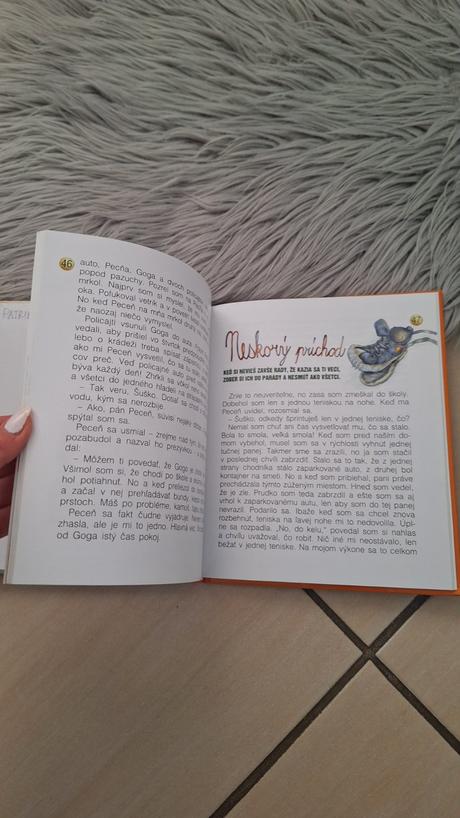 46
auto, Pecňa, Goga a dvoch
popod pazuchy. Pozrel som na
mrkol. Najprv som si myslel, že
oka. Poťukoval vetrík a v povetrí
No keď Peceň na mňa mrkol druhý
že naozaj niečo vymyslel.
Policajti vsunuli Goga do auta.
vedali, aby prišiel vo štvrtok
lebo o krádeži treba spísať
ako mi Peceň vysvetlil, čo sa tu
cov preč. Veď policajné auto pred
býva každý deň! Zhŕkli sa všetci
a všetci do jedného hľadeli na
– Tak veru, Šuško. Dotiaľ sa chodí s
vodu, kým sa nerozbije.
– Ako, pán Peceň, súvisí nejaký
spýtal som sa.
Peceň sa usmial – zrejme rád tým, že
pozabudol a nazval ho prezývkou –
dal:
– Môžem ti povedať, že Gogo je
Všimol som si, že chodí po škole a
hoľ potiahnuť. No a keď preliezol
a začal v nej prehľadávať bundy,
prstoch. Máš po probléme, kamoš,
Peceň sa fakt čudne vyjadruje.
zhasla, ale je mi to jedno. Hlavná vec,
od Goga istý čas pokoj.
47
Neskorý príchod
KEĎ SI NEVIEŠ ZAKŠE RADY, ŽE KAZIA SA TI VECI,
ZOBER SI ICH DO PARÁDY A NESMÚŤ AKO VŠETCI.
Znie to neuveriteľne, no zasa som zmeškal do školy.
Dobehol som len s jednou teniskou na nohe. Keď ma
Peceň uvidel, rozosmial sa.
– Šuško, odkedy šprintuješ len v jednej teniske, čo?
Nemal som chuť ani čas vysvetľovať mu, čo sa stalo.
Bola to smola, veľká smola! Keď som pred naším do-
mom vybehol, musel som sa v rýchlosti vyhnúť jednej
tučnej panej. Takmer sme sa zrazili, no ja som stačil
v poslednej chvíli zabrzdiť. Stalo sa to tak, že z jednej
strany chodníka stálo zaparkované auto, z druhej bol
kontajner na smeti. No a keď som pribiehal, pani práve
prechádzala týmto zúženým miestom. Hneď som vedel,
že je zle. Prudko som teda zabrzdil a ešte som sa aj
vrhol k zaparkovanému autu, len aby som do tej panej
nevrazil. Podarilo sa. Ibaže keď som sa chcel znova
rozbehnúť, teniska na ľavej nohe mi to nedovolila. Úpl-
ne sa rozpadla. „No, do kelu,“ povedal som si nahlas
a chvíľu uvažoval, čo robiť. Nič iné mi neostávalo, len
bežať v jednej teniske. Na mojom výkone sa to celkom